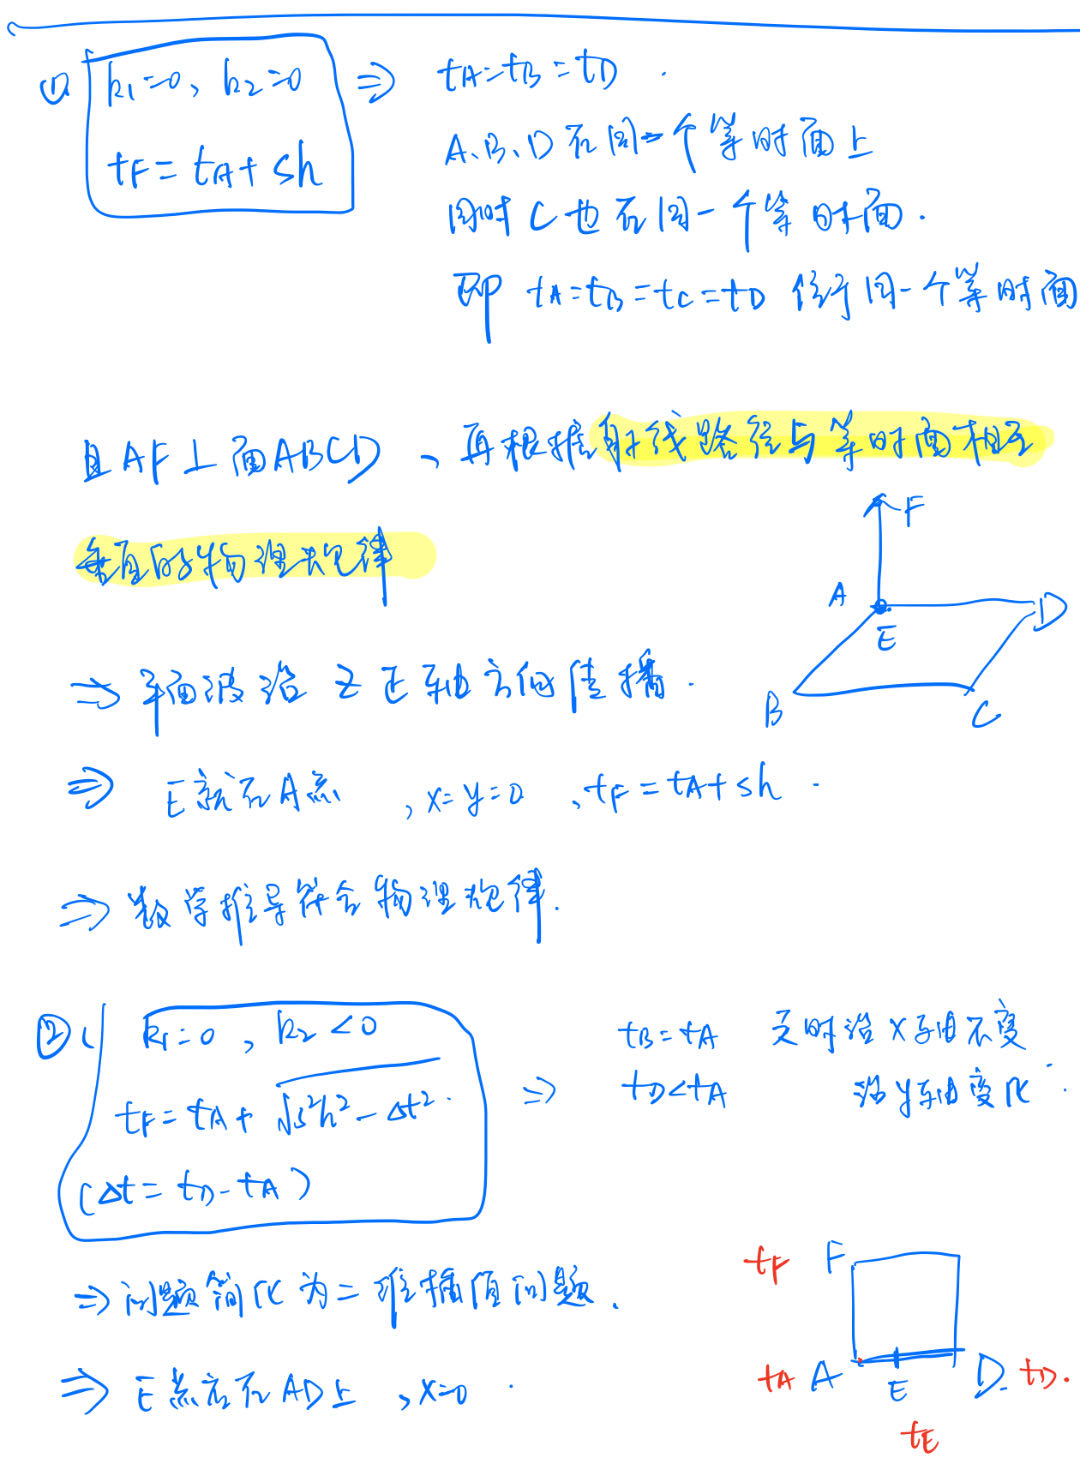 ① k₁=0, k₂=0 ⇒ tA=tB=tD.
tF=tA+sh
A、B、D在同一个等时面上
同时C也在同一个等时面.
即 tA=tB=tC=tD 位于同一个等时面
且AF⊥面ABCD、再根据射线路径与等时面相互
垂直的物理规律
F
A
E
D
B
C
⇒平面波沿Z正轴方向传播.
⇒ E就在A点 ,x=y=0 、tF=tA+sh.
⇒数学推导符合物理规律.
② k₁=0, k₂<0
tF=tA+√s²h²-Δt².
(Δt=tD-tA)
⇒ tB=tA 走时沿X轴不变
tD<tA 沿y轴变化.
⇒问题简化为二维插值问题.
⇒ E点应在AD上 ,x=0.
tF F
tA A E D tD.
tE